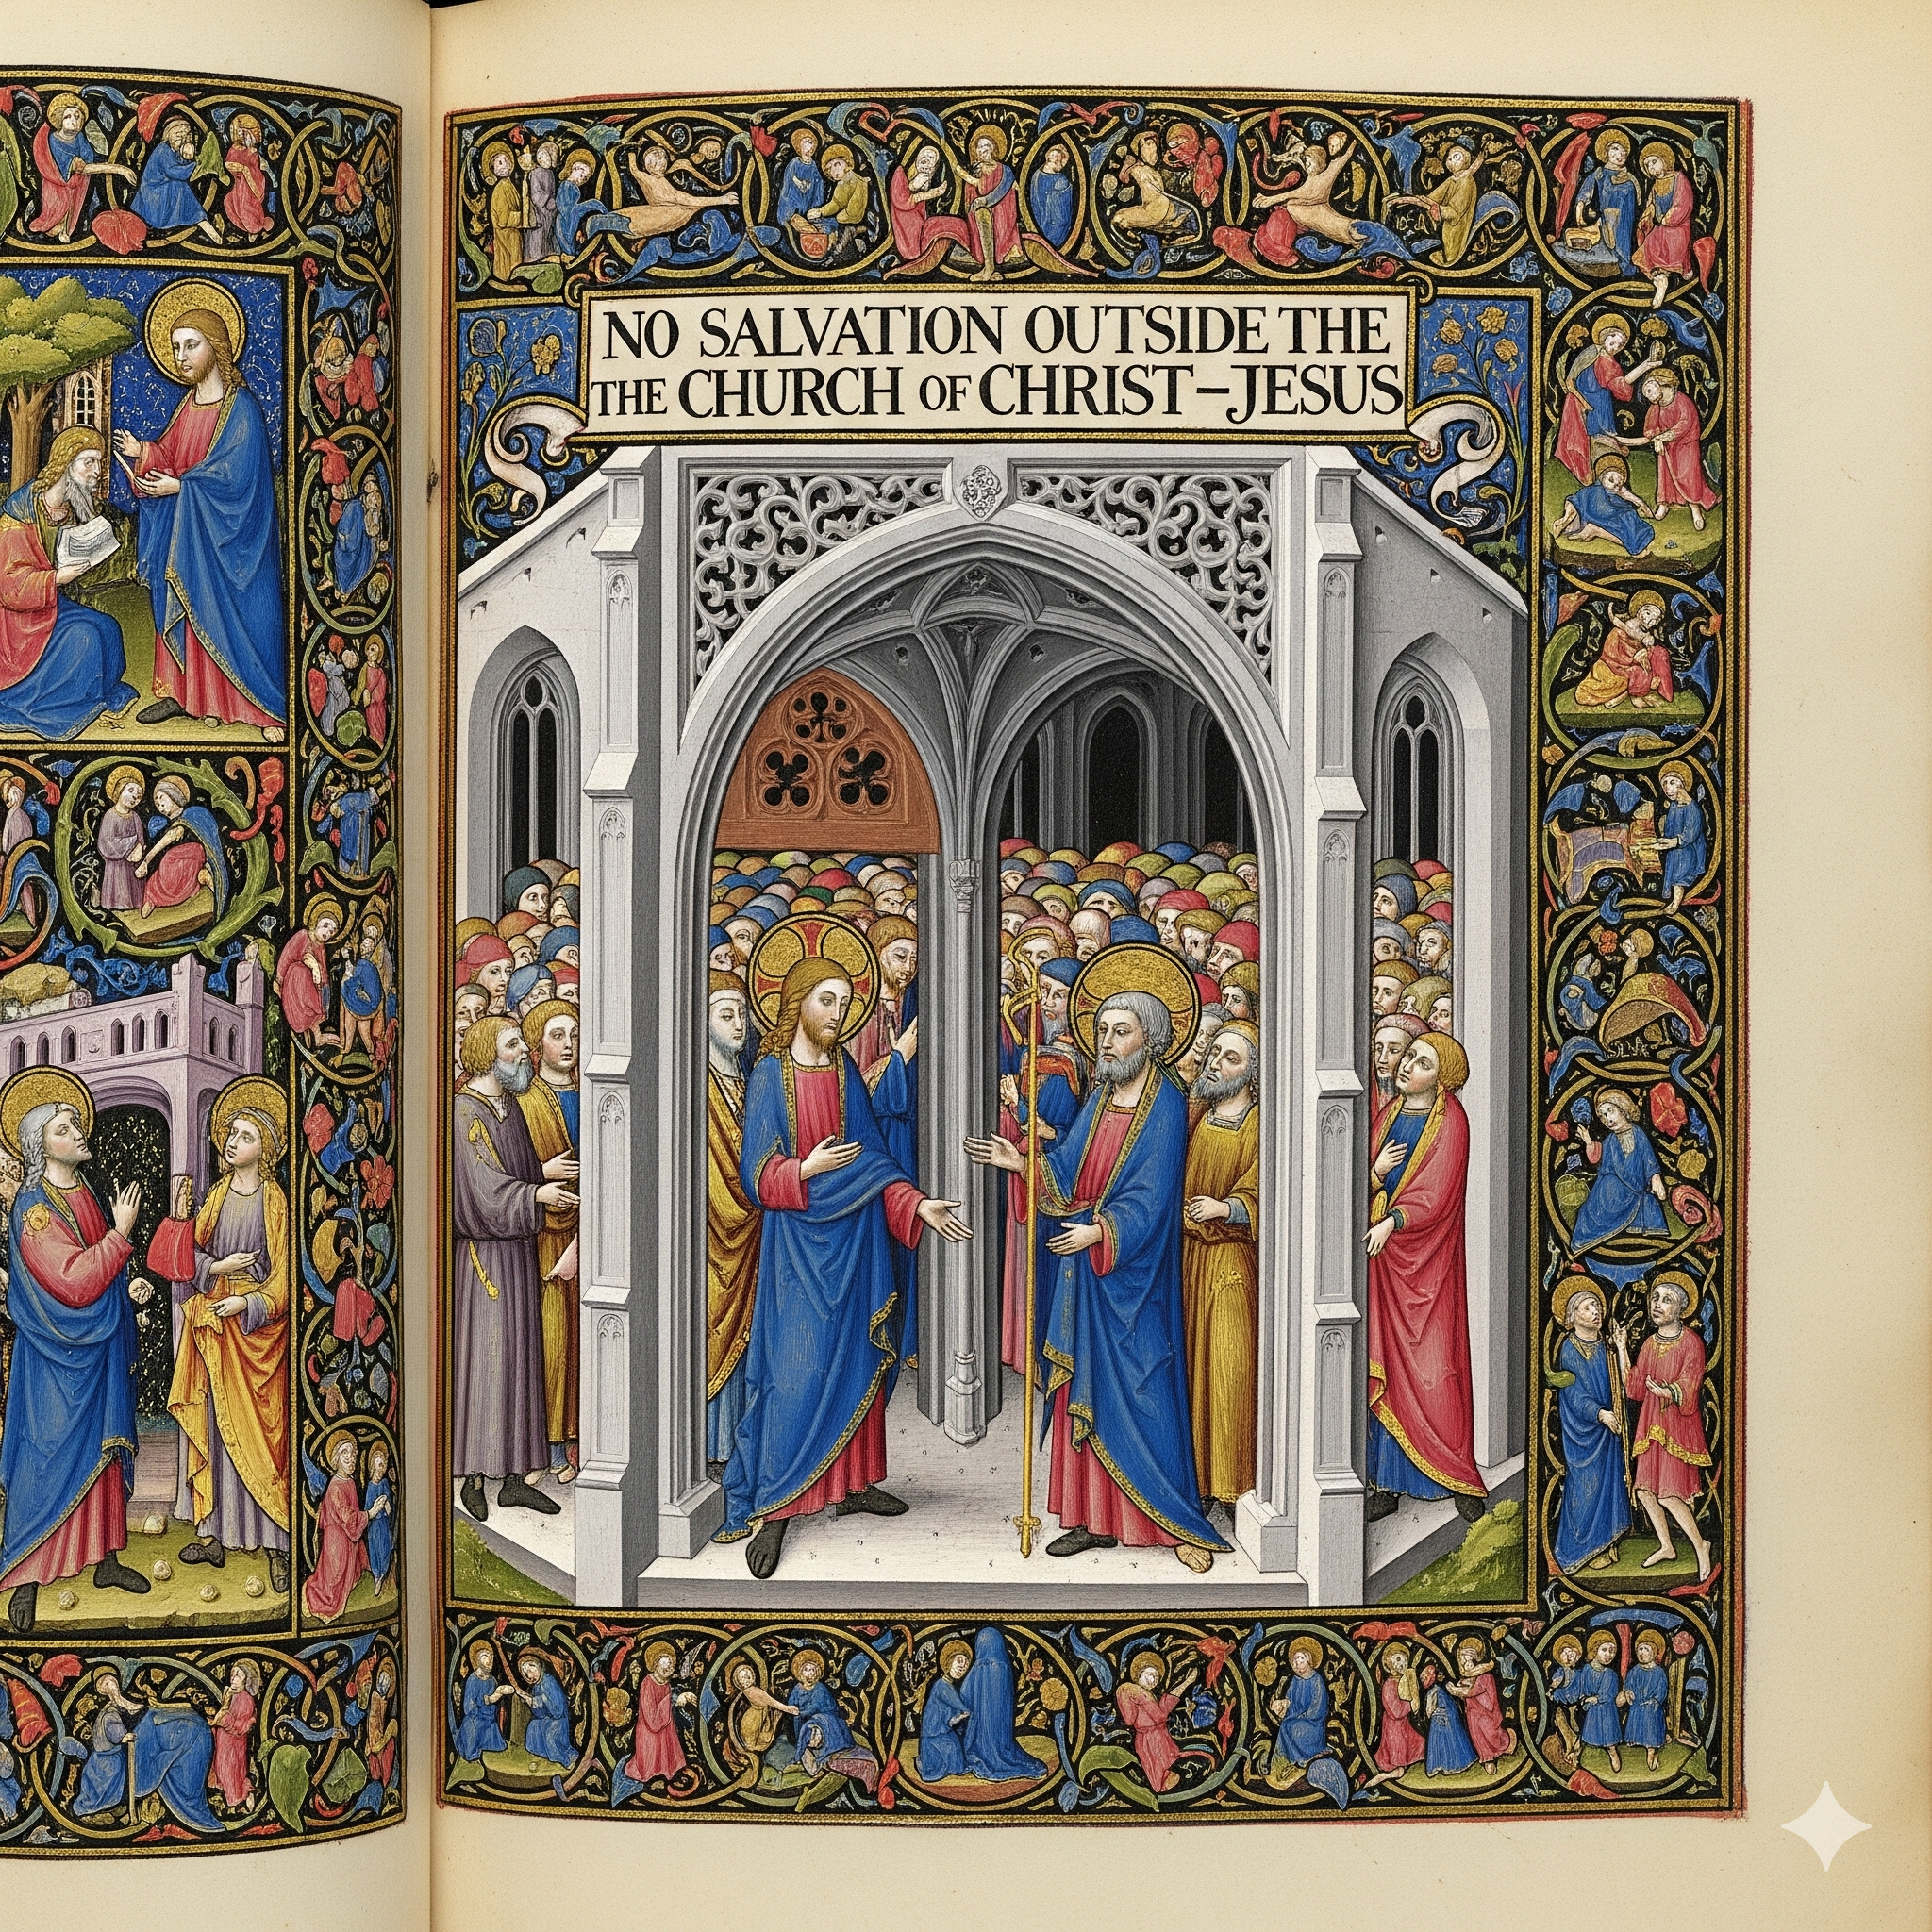 NO SALVATION OUTSIDE THE
THE CHURCH OF CHRIST–JESUS